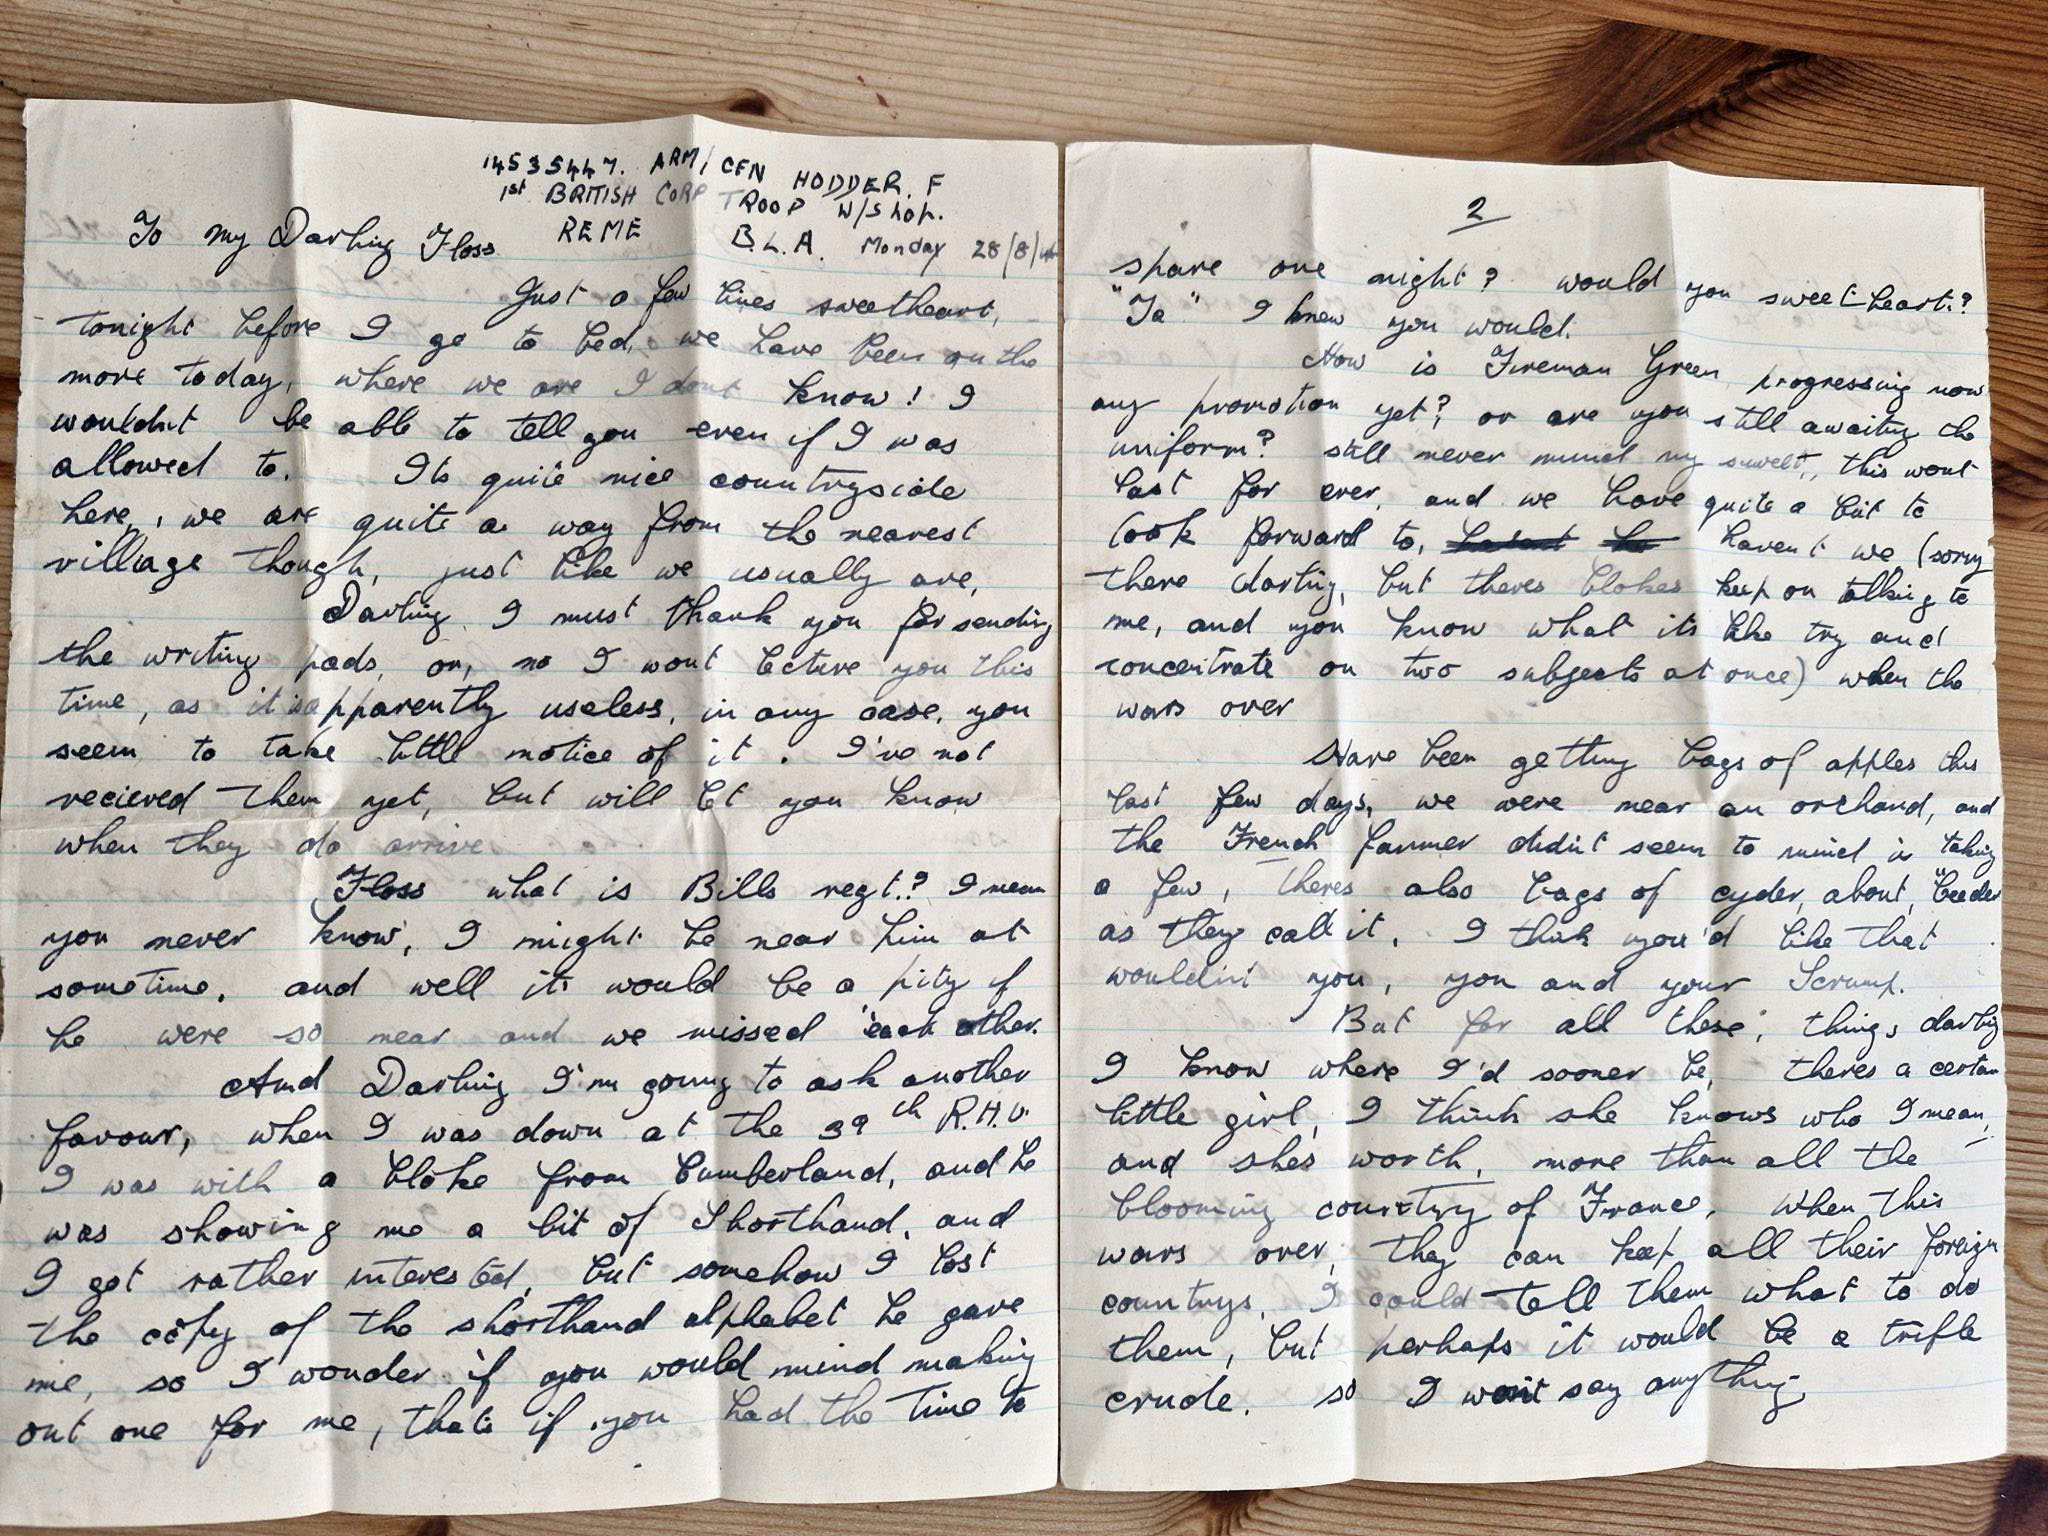 14535447. ARM/CFN HODDER. F
1st BRITISH CORP TROOP W/Shop.
REME B.L.A. Monday 28/8/44
To my Darling Floss
Just a few lines sweetheart,
tonight before I go to bed, we have been on the
more today, where we are I dont know! I
wouldnt be able to tell you even if I was
allowed to. Its quite nice countryside
here, we are quite a way from the nearest
village though, just like we usually are,
Darling I must thank you for sending
the writing pads, or, no I wont lecture you this
time, as it is apparently useless, in any case, you
seem to take little notice of it. I've not
recieved them yet, but will let you know
when they do arrive.
Floss what is Bills regt.? I mean
you never know, I might be near him at
sometime, and well its would be a pity if
he were so near and we missed each other.
And Darling I'm going to ask another
favour, when I was down at the 39th R.H.U.
I was with a bloke from Cumberland, and he
was showing me a bit of Shorthand, and
I got rather interested, but somehow I lost
the copy of the shorthand alphabet he gave
me, so I wonder if you would mind making
out one for me, thats if you had the time to
2
spare one night? would you sweetheart?
"Ta" I knew you would.
How is Fireman Green progressing now
any promotion yet? or are you still awaiting the
uniform? still never mind my sweet, this wont
last for ever, and we have quite a bit to
look forward to, havent we (sorry
there darling, but theres blokes keep on talking to
me, and you know what its like try and
concentrate on two subjects at once) when the
wars over
Have been getting bags of apples this
last few days, we were near an orchard, and
the French farmer didnt seem to mind us taking
a few, theres also bags of cyder, about,
as they call it, I think you'd like that
wouldnt you, you and your Scrump.
But for all these, things darling
I know where I'd sooner be, theres a certain
little girl, I think she knows who I mean,
and shes worth, more than all the
blooming country of France, when this
wars over, they can keep all their foreign
countrys, I could tell them what to do
them, but perhaps it would be a trifle
crude. so I wont say anything